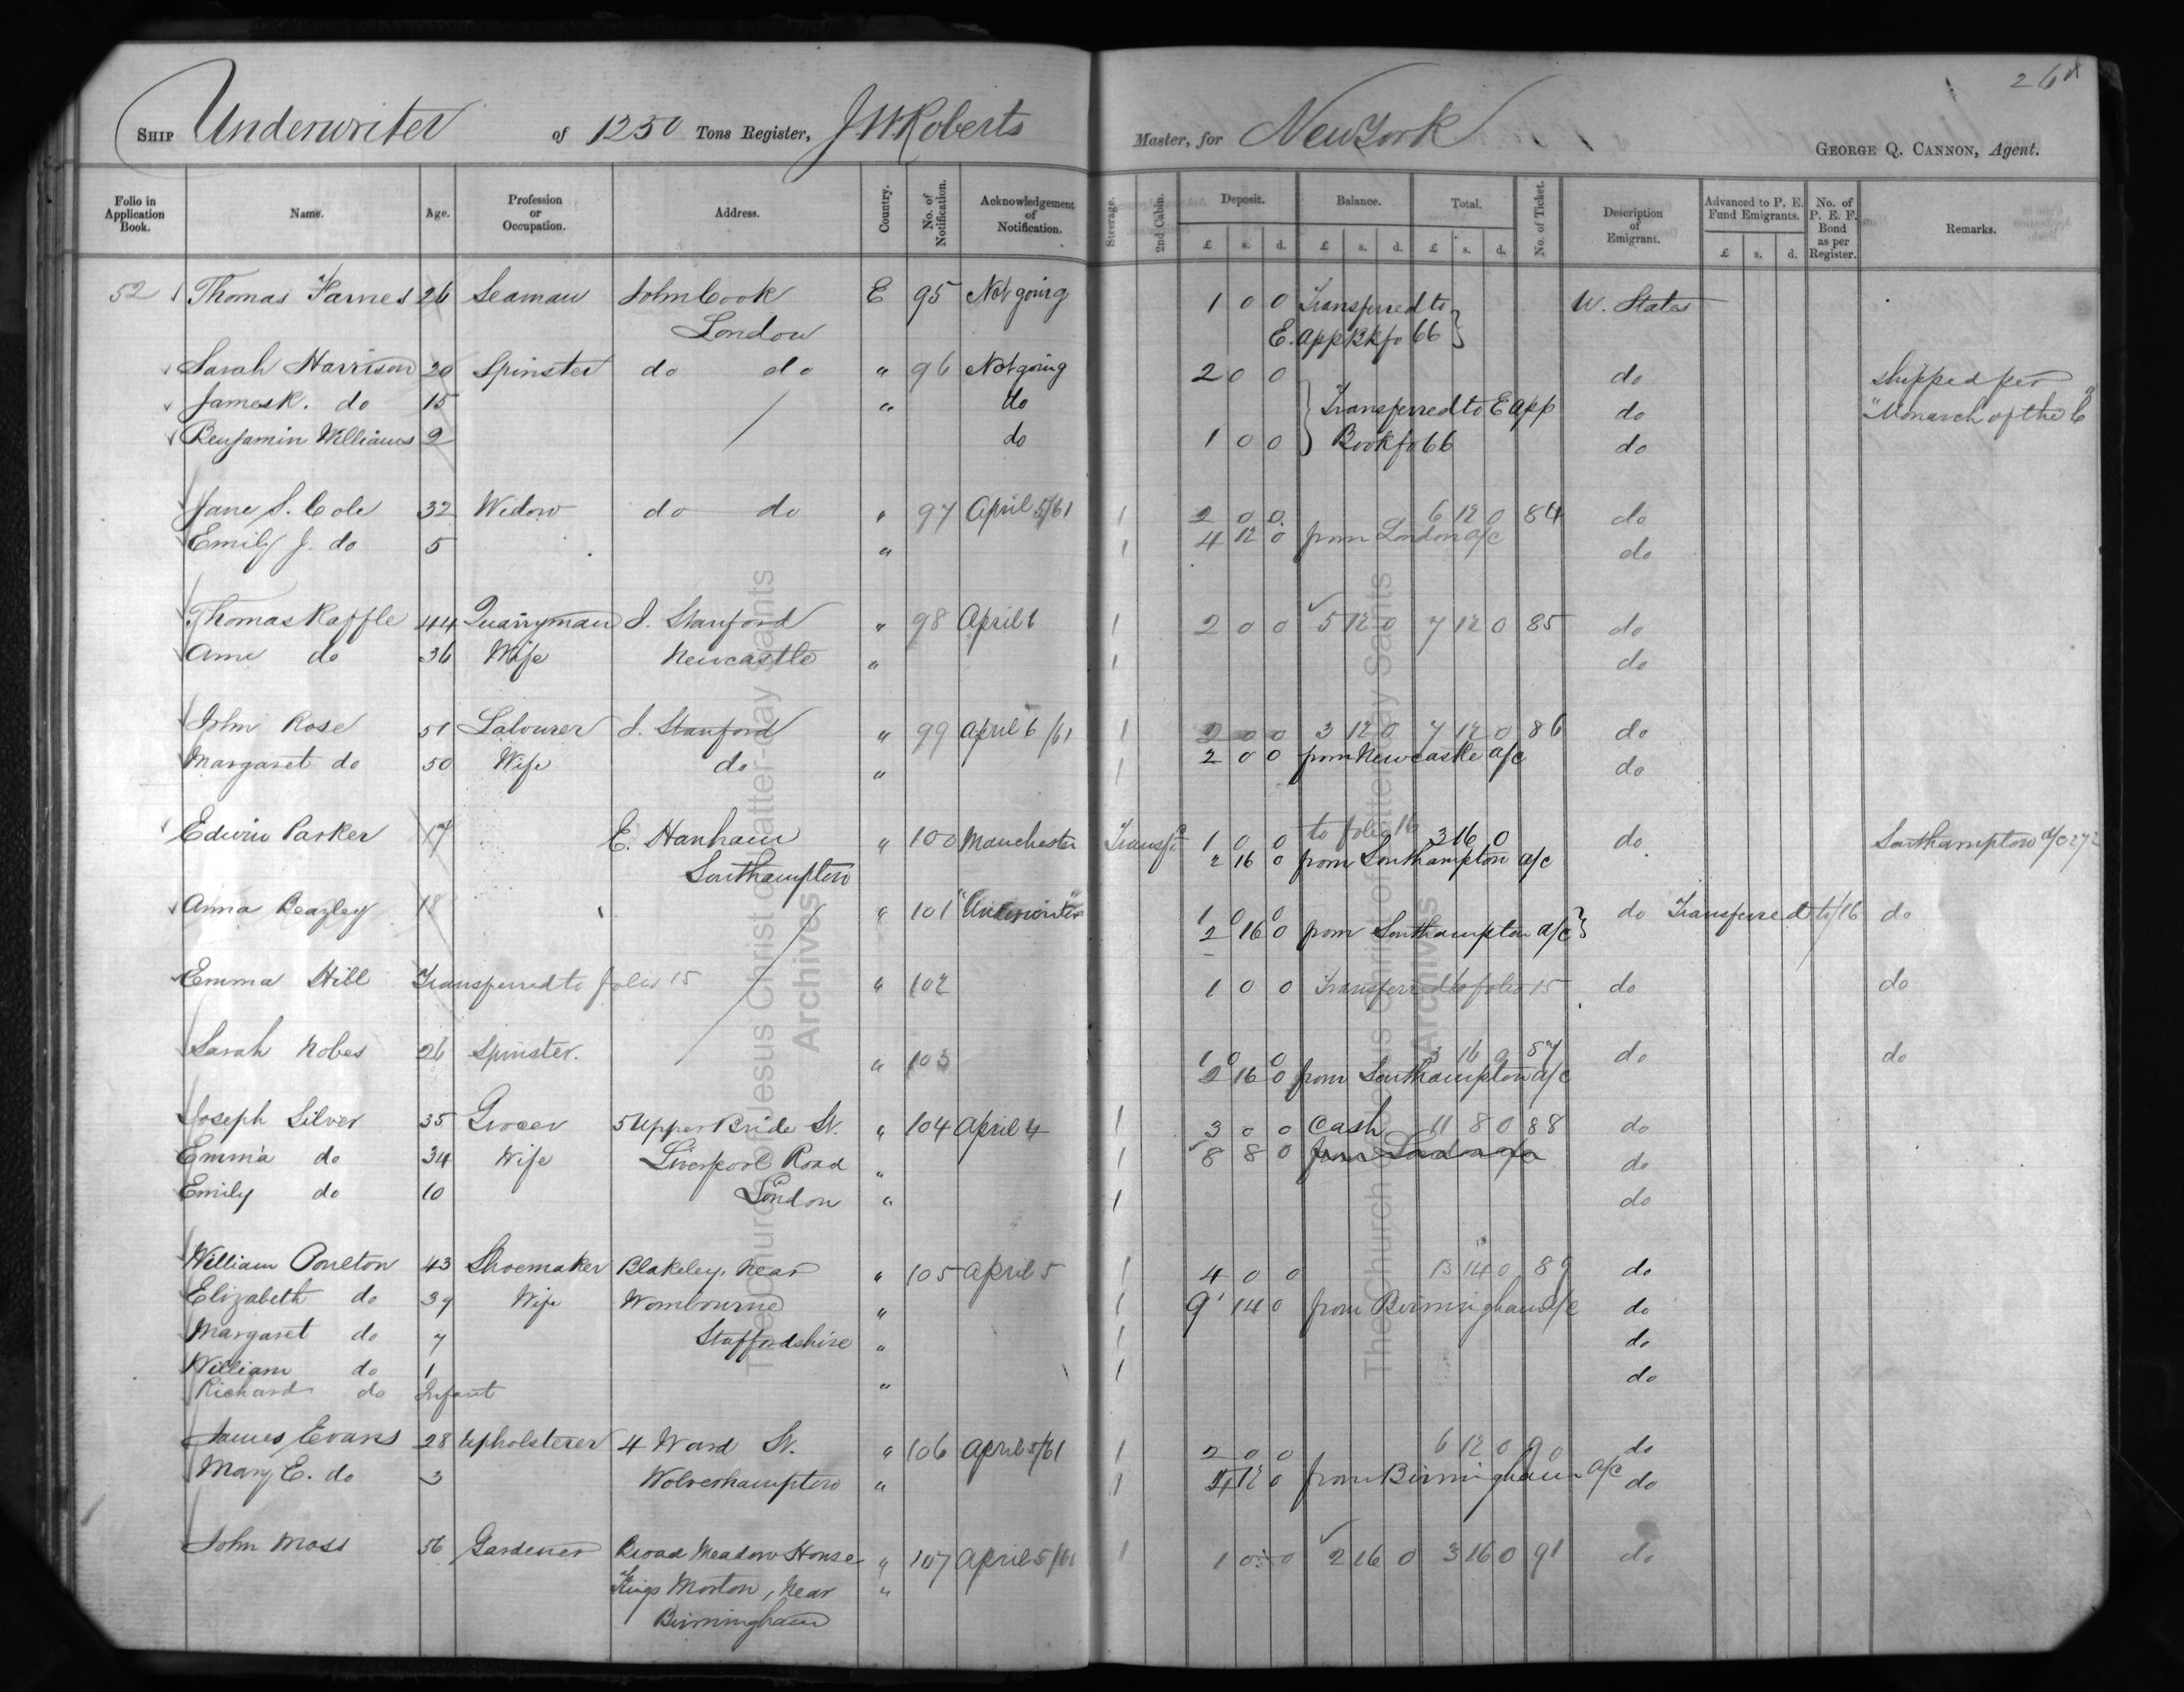 268
SHIP Underwriter of 1250 Tons Register, J W Roberts Master, for New York GEORGE Q. CANNON, Agent.
Folio in Application Book. Name. Age. Profession or Occupation. Address. Country. No. of Notification. Acknowledgement of Notification. Steerage. 2nd Cabin. Deposit. Balance. Total. No. of Ticket. Description of Emigrant. Advanced to P. E. Fund Emigrants. No. of P. E. F. Bond as per Register. Remarks.
£ s. d. £ s. d. £ s. d. £ s. d.
52 Thomas 26 Seaman John Cook E 95 Not going 1 0 0 Transferred to U. States
London E. App Bk fo 66
Sarah Harrison 20 Spinster do do " 96 Not going 2 0 0 do shipped per
James R. do 15 " do Transferred to E App do "Monarch of the
Benjamin Williams 2 do 1 0 0 Book fo 66 do
Jane S. Cole 32 Widow do do " 97 April 5/61 1 2 0 0 6 12 0 84 do
Emily J. do 5 " 1 4 12 0 from London a/c do
Thomas Raffle 44 Quarryman J. Stanford " 98 April 6 1 2 0 0 5 12 0 7 12 0 85 do
Ann do 36 Wife Newcastle " 1 do
John Rose 51 Labourer J. Stanford " 99 April 6/61 1 2 0 0 3 12 0 7 12 0 86 do
Margaret do 50 Wife do " 1 2 0 0 from Newcastle a/c do
Edwin Parker 17 E. Hanham " 100 Manchester Transfd 1 0 0 to folio 16 3 16 0 do Southampton a/c 272
Southampton 2 16 0 from Southampton a/c
Anna Beazley 18 " 101 "Underwriter" 1 0 0 do Transferred to /16 do
2 16 0 from Southampton a/c
Emma Hill Transferred to folio 15 " 102 1 0 0 Transferred to folio 15 do do
Sarah Nobes 26 Spinster. " 103 1 0 0 3 16 0 87 do do
2 16 0 from Southampton a/c
Joseph Silver 35 Grocer 5 Upper Bride St. " 104 April 4 1 3 0 0 Cash 11 8 0 88 do
Emma do 34 Wife Liverpool Road " 1 8 8 0 from London a/c do
Emily do 10 London " 1 do
William Poulton 43 Shoemaker Blakeley, near " 105 April 5 1 4 0 0 13 14 0 89 do
Elizabeth do 39 Wife Wombourne " 1 9 14 0 from Birmingham a/c do
Margaret do 7 Staffordshire " 1 do
William do 1 1 do
Richard do Infant "
James Evans 28 Upholsterer 4 Ward St. " 106 April 5/61 1 2 0 0 6 12 0 90 do
Mary E. do 3 Wolverhampton " 1 4 12 0 from Birmingham a/c do
John Moss 56 Gardener Broad Meadow House " 107 April 5/61 1 1 0 0 2 16 0 3 16 0 91 do
Kings Morton, near "
Birmingham
The Church of Jesus Christ of Latter-day Saints
Archives
The Church of Jesus Christ of Latter-day Saints
Archives